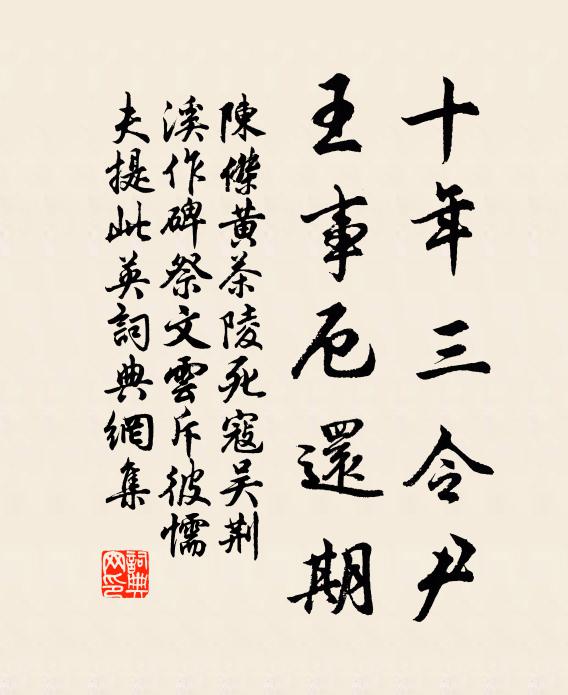 十年三令尹
王事厄還期
陳傑黃茶陵死寇吴荆
溪作碑祭文雲斥彼懦
夫提此英詞典網集
詞典
网印